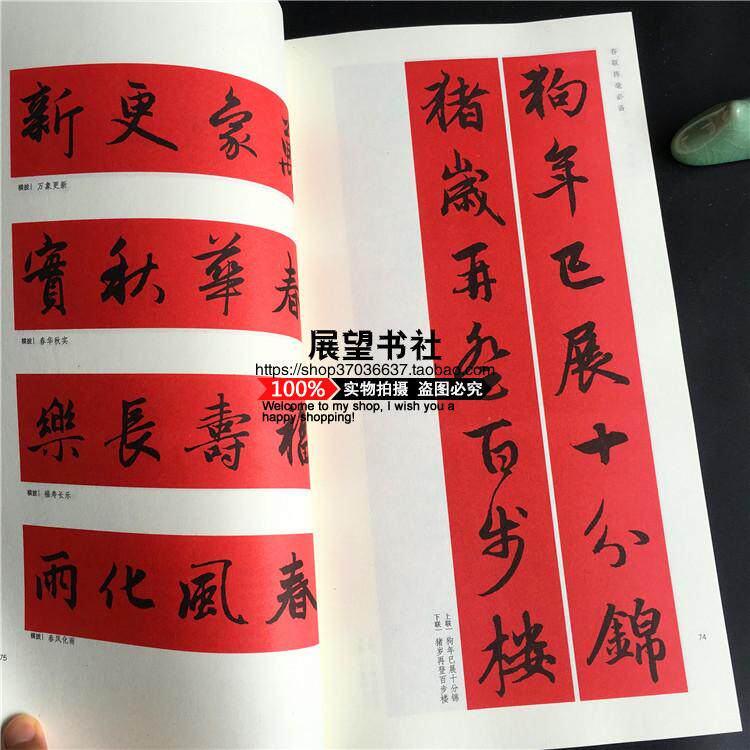 新更象萬
横披 | 万象更新
實秋華春
横披 | 春华秋实
樂長壽福
横披 | 福寿长乐
雨化風春
横披 | 春风化雨
75
春联挥毫必备
狗年已展十分錦
猪歲再登百步楼
上联 | 狗年已展十分锦
下联 | 猪岁再登百步楼
74
展望书社
https://shop37036637.taobao.com
100% 实物拍摄 盗图必究
Welcome to my shop, I wish you a
happy shopping!